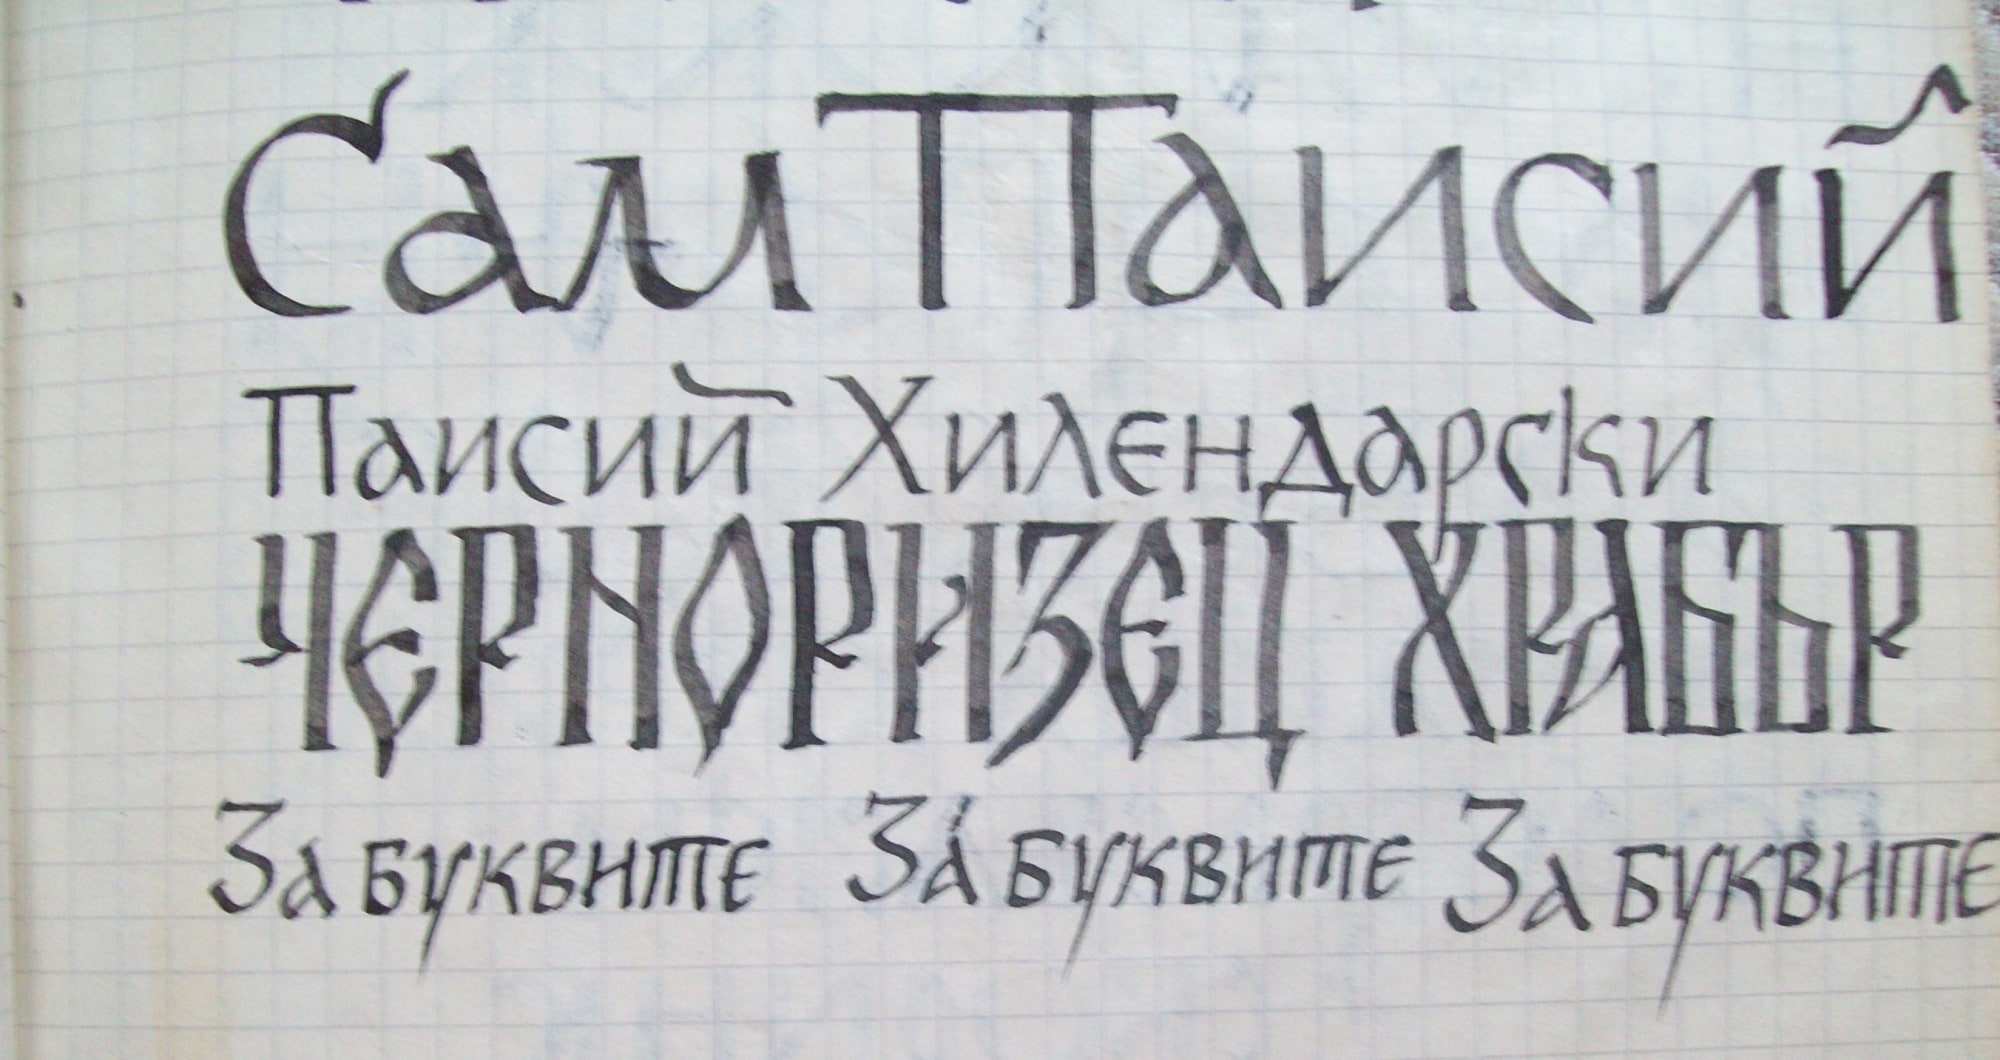 Сам Паисий
Паисий Хилендарски
ЧЕРНОРИЗЕЦ ХРАБЪР
За буквите За буквите За буквите